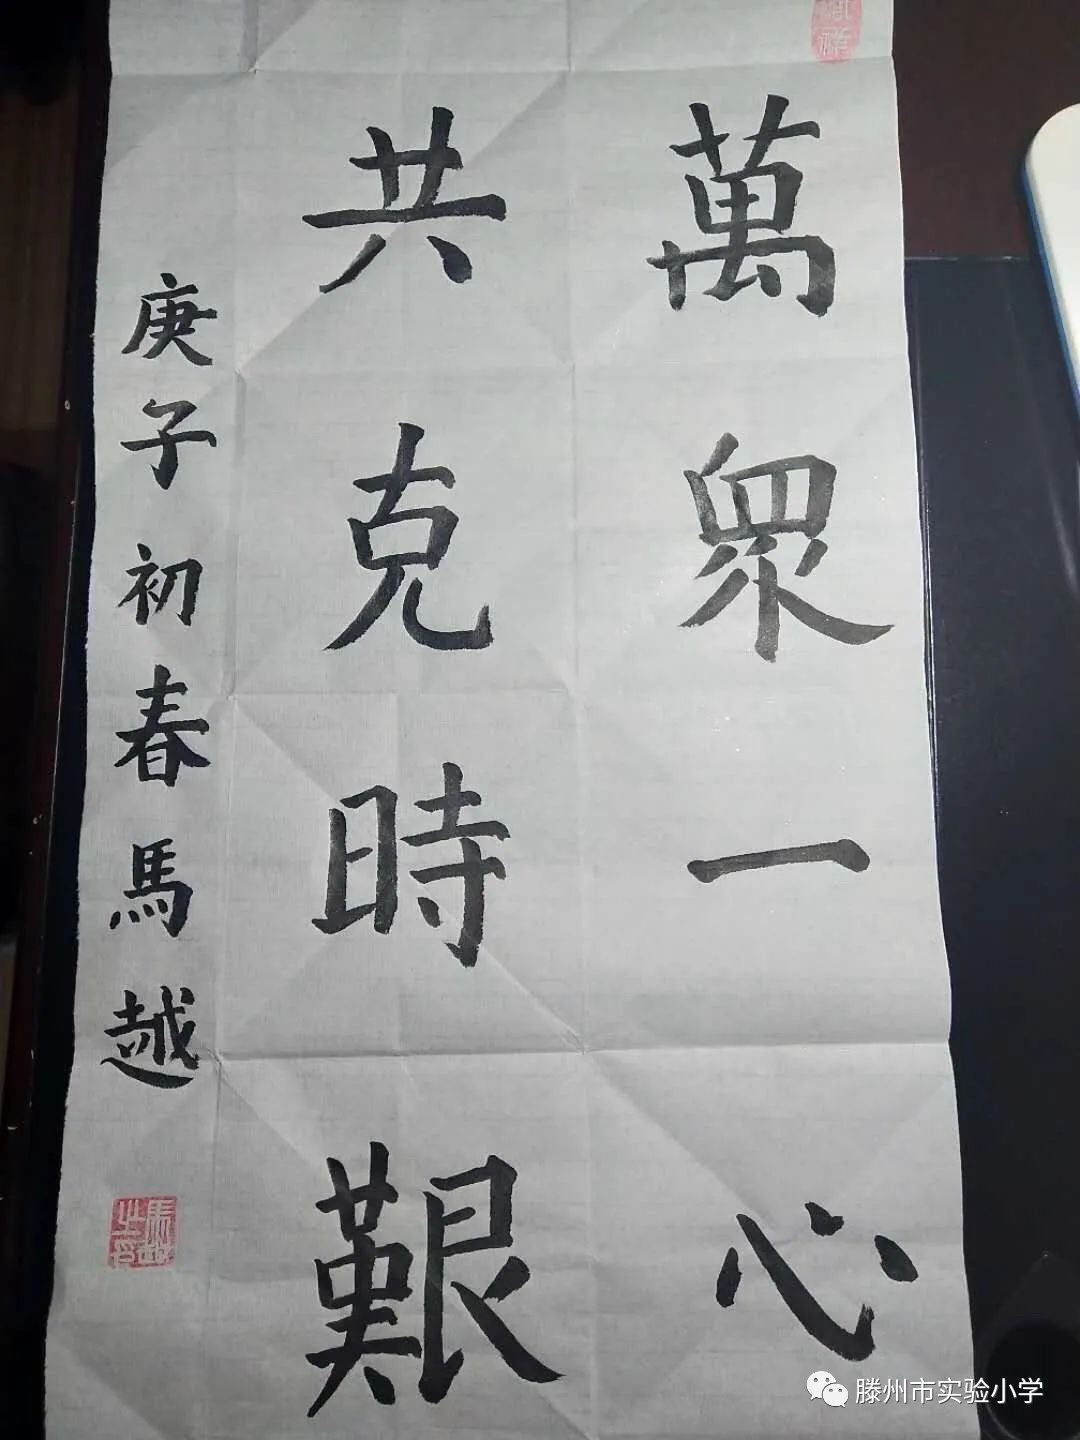 萬眾一心
共克時艱
庚子初春馬越
馬越之印
滕州市实验小学